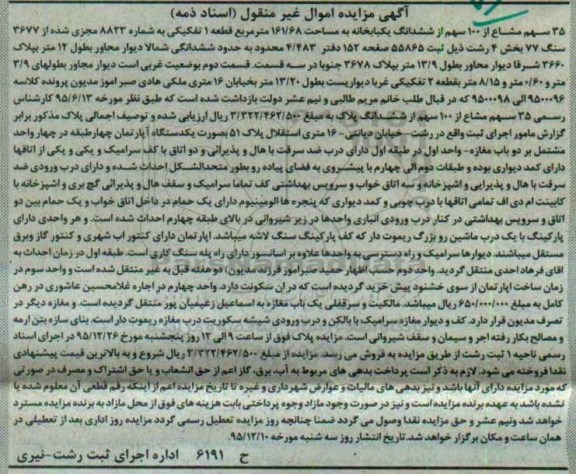 آگهی مزایده اموال غیر منقول (اسناد ذمه)
۳۵ سهم مشاع از ۱۰۰ سهم از ششدانگ یکبابخانه به مساحت ۱۶۱/۶۸ مترمربع قطعه ۱ تفکیکی به شماره ۸۸۲۳ مجزی شده از ۳۶۷۷
سنگ ۷۷ بخش ۴ رشت ذیل ثبت ۵۵۸۶۵ صفحه ۱۵۲ دفتر ۴/۴۸۳ محدود به حدود ششدانگی شمالا دیوار محاور بطول ۱۲ متر بپلاک
۳۶۶۰ شرقا دیوار محاور بطول ۱۳/۹ متر بپلاک ۳۶۷۸ جنوبا در سه قسمت، قسمت دوم بوضعیت غربی است دیوار مجاور بطولهای ۳/۹
متر و ۰/۶۰ متر و ۸/۱۵ متر بقطعه ۲ تفکیکی غربا دیواریست بطول ۱۳/۲۰ متر بخیابان ۱۶ متری ملکی هادی صبر اموز مدیون پرونده کلاسه
۹۵۰۰۰۹۶ الی ۹۵۰۰۰۹۸ که در قبال طلب خانم مریم طالبی و نیم عشر دولت بازداشت شده است که طبق نظر مورخه ۹۵/۶/۱۳ کارشناس
رسمی ۳۵ سهم مشاع از ۱۰۰ سهم از ششدانگ پلاک به مبلغ ۳/۳۲۲/۴۶۲/۵۰۰ ریال ارزیابی شده و توصیف اجمالی پلاک مذکور برابر
گزارش مامور اجرای ثبت واقع در رشت- خیابان دیانتی- ۱۶ متری استقلال پلاک ۵۱ بصورت یکدستگاه آپارتمان چهارطبقه در چهار واحد
مشتمل بر دو باب مغازه- واحد اول در طبقه اول دارای درب ضد سرقت با هال و پذیرائی و دو اتاق با کف سرامیک و یکی و یکی از اتاقها
دارای کمد دیواری بوده و طبقات دوم الی چهارم با پیشروی به فضای پیاده رو بطور متحدالشکل احداث شده و دارای درب ورودی ضد
سرقت با هال و پذیرایی و اشپزخانه و سه اتاق خواب و سرویس بهداشتی کف تماما سرامیک و سقف هال و پذیرائی گچ بری و اشپزخانه با
کابینت ام دی اف تمامی اتاقها با درب چوبی و کمد دیواری که پنجره ها الومینیوم دارای یک حمام در داخل اتاق خواب و یک حمام بین دو
اتاق و سرویس بهداشتی در کنار درب ورودی انباری واحدها در زیر شیروانی در بالای طبقه چهارم احداث شده است. و هر واحدی دارای
پارکینگ با یک درب ماشین رو بزرگ ریموت دار که کف پارکینگ سنگ لاشه میباشد. اپارتمان دارای کنتور اب شهری و کنتور گاز وبرق
مستقل میباشند. دیوارها سرامیک و راه دسترسی به واحدها علاوه بر اسانسور دارای راه پله سنگ کاری است. طبقه اول در زمان احداث به
اقای فرهاد احدی منتقل گردید. واحد دوم حسب اظهار حمید صبراموز فرزند مدیون) دو هفته قبل به غیر منتقل شده است و واحد سوم در
زمان ساخت اپارتمان از سوی خشنود پیش خرید گردیده است که در ان سکونت دارد. واحد چهارم در اجاره غلامحسین عاشوری در رهن
کامل به مبلغ ۶۵۰/۰۰۰/۰۰۰ ریال میباشد. مالکیت و سرقفلی یک باب مغازه به اسماعیل زغیمیان پور منتقل گردیده است. و مغازه دیگر در
تصرف مدیون قرار دارد. کف و دیوار مغازه سرامیک با بالکن و درب ورودی شیشه سکوریت درب مغازه ریموت دار است. بنای سازه بتن ارمه
و مصالح بکار رفته اجر و سیمان و سقف شیروانی است. مزایده پلاک فوق از ساعت ۹ الی ۱۲ روز پنجشنبه مورخ ۹۵/۱۲/۲۶ در اجرای اسناد
رسمی ناحیه ۱ ثبت رشت از طریق مزایده به فروش می رسد. مزایده از مبلغ ۳/۳۲۲/۴۶۲/۵۰۰ ریال شروع و به بالاترین قیمت پیشنهادی
نقدا فروخته می شود. لازم به ذکر است پرداخت بدهی های مربوط به آب، برق، گاز اعم از حق انشعاب و یا حق اشتراک و مصرف در صورتی
که مورد مزایده دارای آنها باشد و نیز بدهی های مالیات و عوارض شهرداری و غیره تا تاریخ مزایده اعم از اینکه رقم قطعی آن معلوم شده یا
نشده باشد به عهده برنده مزایده است و نیز در صورت وجود مازاد وجوه پرداختی بابت هزینه های فوق از محل مازاد به برنده مزایده مسترد
خواهد شد ونیم عشر و حق مزایده نقدا وصول می گردد ضمنا چنانچه روز مزایده تعطیل رسمی گردد مزایده روز اداری بعد از تعطیلی در
همان ساعت و مکان برگزار خواهد شد. تاریخ انتشار روز سه شنبه مورخه ۹۵/۱۲/۱۰.
ح ۶۱۹۱ اداره اجرای ثبت رشت-نیری